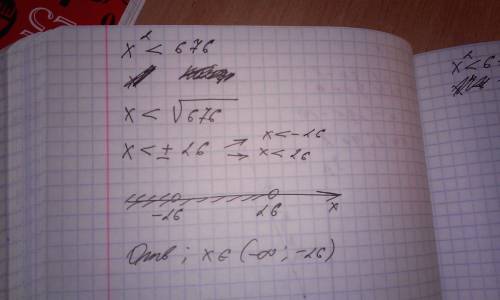 x² < 676
x < √676
x < ± 26 → x < -26
→ x < 26
-26 26 x
Отв ; x ∈ (-∞ ; -26)
x² < 6